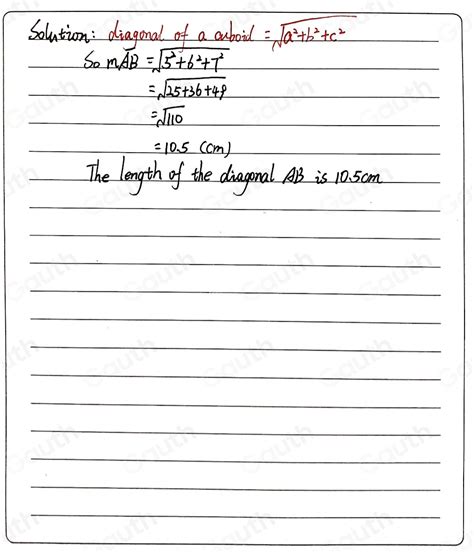 Solution: diagonal of a cuboid = √a²+b²+c²
So mAB = √5²+6²+7²
= √25+36+49
= √110
= 10.5 (cm)
The length of the diagonal AB is 10.5cm